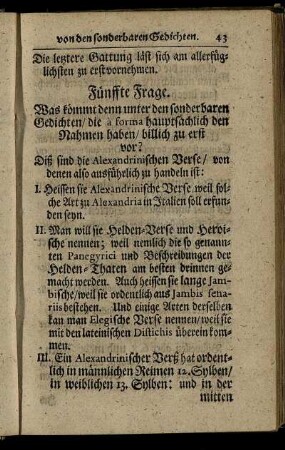 von den sonderbaren Gedichten. 43
Die letztere Gattung läst sich am allerfüg-
lichsten zu erst vornehmen.
Fünffte Frage.
Was kömmt denn unter den sonderbaren
Gedichten/ die à forma hauptsächlich den
Nahmen haben/ billich zu erst
vor?
Diß sind die Alexandrinischen Verse/ von
denen also ausführlich zu handeln ist:
I. Heissen sie Alexandrinische Verse, weil sol-
che Art zu Alexandria in Italien soll erfun-
den seyn.
II. Man will sie Helden-Verse und Heroi-
sche nennen; weil nemlich die so genann-
ten Panegyrici und Beschreibungen der
Helden-Thaten am besten drinnen ge-
macht werden. Auch heissen sie lange Jam-
bische/ weil sie ordentlich aus Jambis sena-
riis bestehen. Und einige Arten derselben
kan man Elegische Verse nennen/ weil sie
mit den lateinischen Distichis überein kom-
men.
III. Ein Alexandrinischer Verß hat ordent-
lich in männlichen Reimen 12. Sylben/
in weiblichen 13. Sylben: und in der
mitten